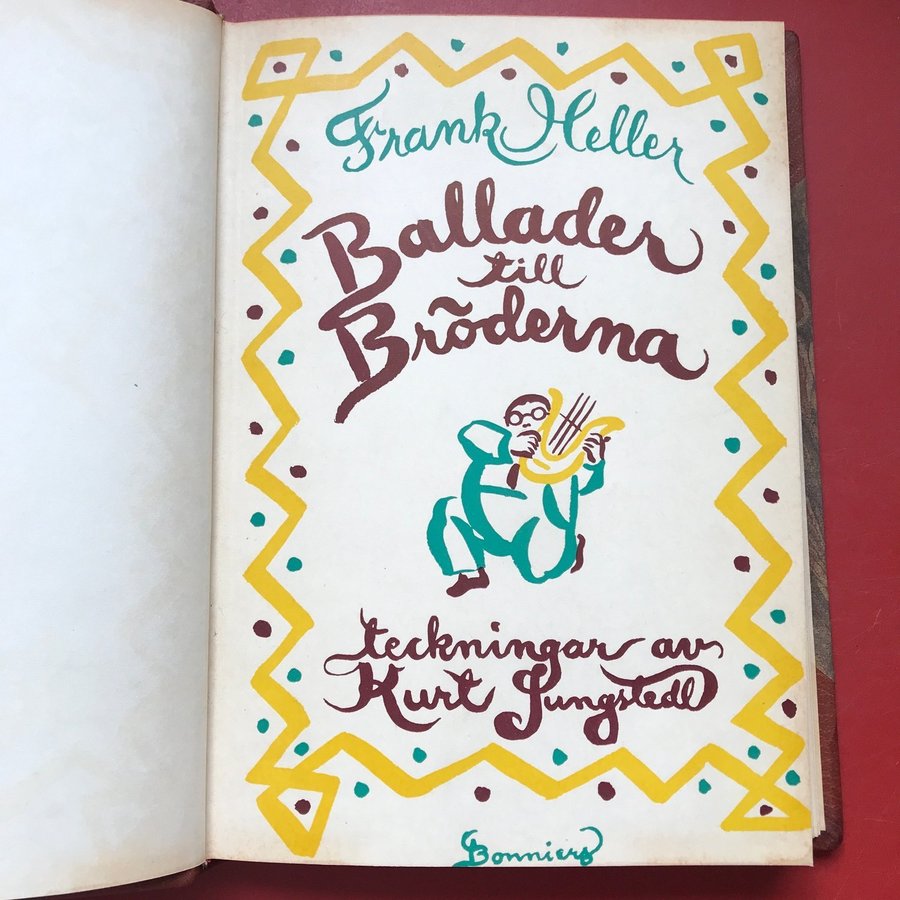 Frank Heller
Ballader
till
Brõderna
teckningar av
Kurt Jungstedt
Bonniers